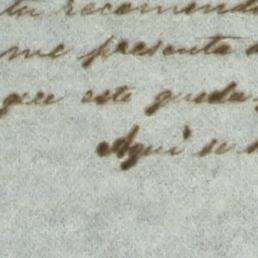 tu recomend
me presenta a
que este queda
Aqui se